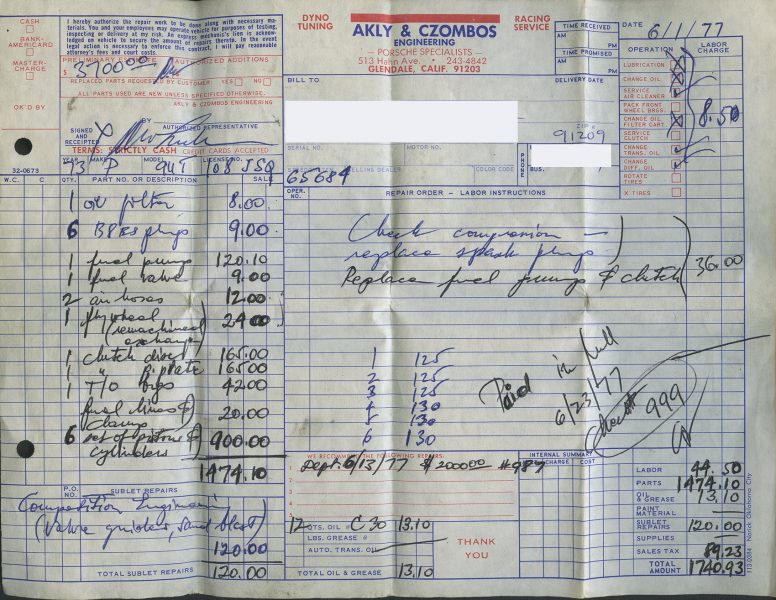 CASH
BANK-AMERICARD
MASTER-CHARGE
OK'D BY
32-0673
I hereby authorize the repair work to be done along with necessary materials. You and your employees may operate vehicle for purposes of testing, inspecting or delivery at my risk. An express mechanic's lien is acknowledged on vehicle to secure the amount of repairs thereto. In the event legal action is necessary to enforce this contract, I will pay reasonable attorney's fees and court costs.
PRELIMINARY ESTIMATE
AUTHORIZED ADDITIONS
$
REPLACED PARTS REQUESTED BY CUSTOMER YES NO
ALL PARTS USED ARE NEW UNLESS SPECIFIED OTHERWISE.
AKLY & CZOMBOS ENGINEERING
BY
AUTHORIZED REPRESENTATIVE
SIGNED AND RECEIPTED
X
TERMS: STRICTLY CASH CREDIT CARDS ACCEPTED
DYNO TUNING
AKLY & CZOMBOS
ENGINEERING
PORSCHE SPECIALISTS
513 Hahn Ave. • 243-4842
GLENDALE, CALIF. 91203
RACING SERVICE
TIME RECEIVED
AM
PM
TIME PROMISED
AM
PM
DELIVERY DATE
DATE 6/1/77
BILL TO
ZIP
91209
PHONE
BUS.
OPERATION
LABOR CHARGE
LUBRICATION
CHANGE OIL
SERVICE AIR CLEANER
PACK FRONT WHEEL BRGS.
CHANGE OIL FILTER CART.
SERVICE CLUTCH
CHANGE TRANS. OIL
CHANGE DIFF. OIL
ROTATE TIRES
X TIRES
8.50
YEAR 73 MAKE P MODEL 914T LICENSE NO. 108 JSQ
SERIAL NO.
MOTOR NO.
SELLING DEALER
COLOR CODE
65684
W.C. C QTY. PART NO. OR DESCRIPTION SALE
1 oil filter 8.00
6 BP8ES plugs 9.00
1 fuel pump 120.10
1 fuel valve 9.00
2 air hoses 12.00
1 flywheel (remachined exchange) 24.00
1 clutch disc 165.00
1 " P. plate 165.00
1 T/O brgs 42.00
fuel lines & clamps 20.00
6 set of pistons & cylinders 900.00
1474.10
OPER. NO.
REPAIR ORDER - LABOR INSTRUCTIONS
Check compression –
replace spark plugs
Replace fuel pump & clutch
36.00
1 125
2 125
3 125
4 130
5 130
6 130
Paid in full
6/23/77
Check# 999
P.O. NO.
SUBLET REPAIRS
Competition Engineering
(Valve guides, sand blast)
120.00
TOTAL SUBLET REPAIRS 120.00
WE RECOMMEND THE FOLLOWING REPAIRS:
1
2
3
4
5
6/13/77 $200000 #987
12 QTS. OIL @ C30 13.10
LBS. GREASE @
AUTO. TRANS. OIL
TOTAL OIL & GREASE 13.10
INTERNAL SUMMARY
CHARGE COST
THANK YOU
LABOR 44.50
PARTS 1474.10
OIL & GREASE 13.10
PAINT MATERIAL
SUBLET REPAIRS 120.00
SUPPLIES
SALES TAX 89.23
TOTAL AMOUNT 1740.93
113-0084 Norick Oklahoma City